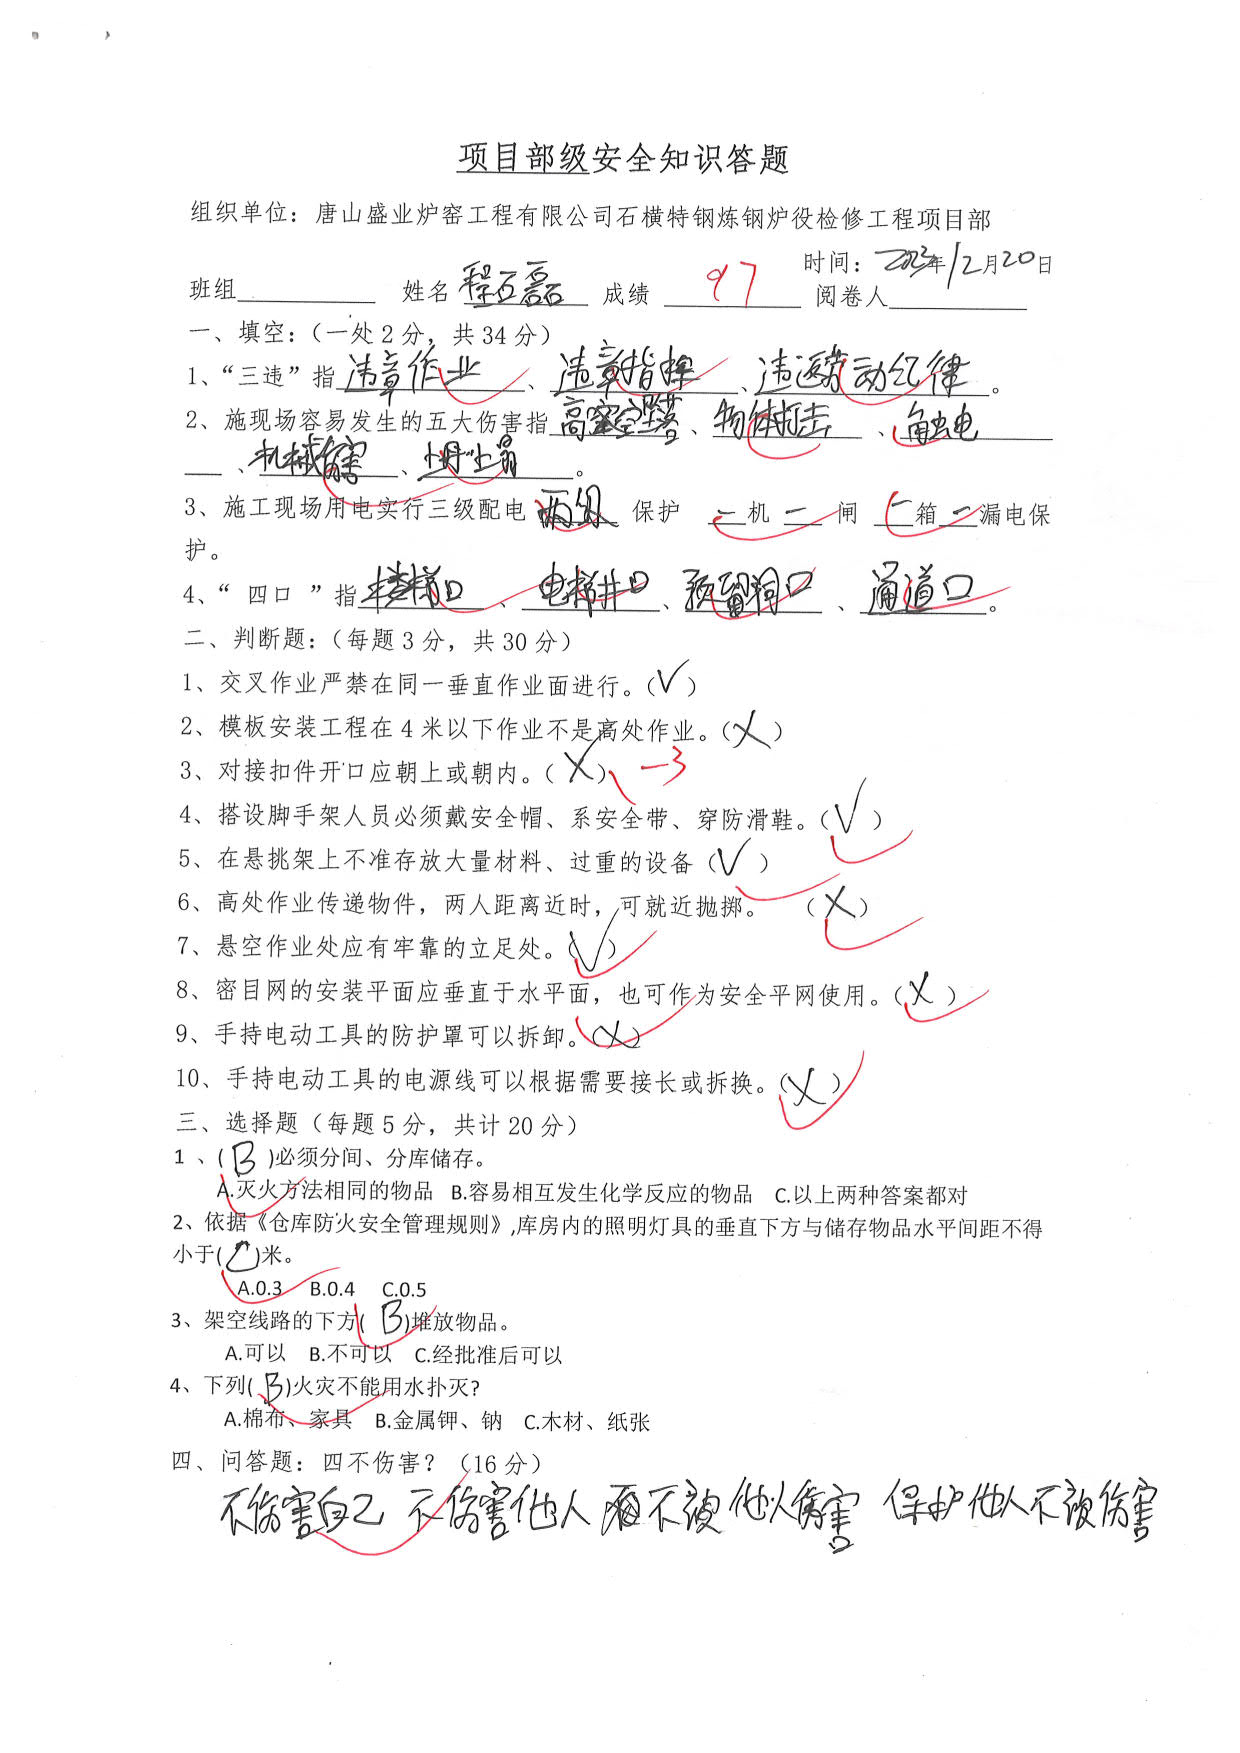 项目部级安全知识答题
组织单位：唐山盛业炉窑工程有限公司石横特钢炼钢炉役检修工程项目部
时间：2023年12月20日
班组 姓名 程石磊 成绩 97 阅卷人
一、填空：（一处2分，共34分）
1、“三违”指 违章作业 、 违章指挥 、 违反劳动纪律 。
2、施现场容易发生的五大伤害指 高空坠落 、 物体打击 、 触电
、 机械伤害 、 坍塌 。
3、施工现场用电实行三级配电 两级 保护 一 机 一 闸 一 箱 一 漏电保
护。
4、“ 四口 ”指 楼梯口 、 电梯井口 、 预留洞口 、 通道口 。
二、判断题：（每题3分，共30分）
1、交叉作业严禁在同一垂直作业面进行。（√）
2、模板安装工程在4米以下作业不是高处作业。（×）
3、对接扣件开口应朝上或朝内。（×） -3
4、搭设脚手架人员必须戴安全帽、系安全带、穿防滑鞋。（√）
5、在悬挑架上不准存放大量材料、过重的设备（√）
6、高处作业传递物件，两人距离近时，可就近抛掷。 （×）
7、悬空作业处应有牢靠的立足处。（√）
8、密目网的安装平面应垂直于水平面，也可作为安全平网使用。（×）
9、手持电动工具的防护罩可以拆卸。（×）
10、手持电动工具的电源线可以根据需要接长或拆换。（×）
三、选择题（每题5分，共计20分）
1 、( B )必须分间、分库储存。
A.灭火方法相同的物品 B.容易相互发生化学反应的物品 C.以上两种答案都对
2、依据《仓库防火安全管理规则》,库房内的照明灯具的垂直下方与储存物品水平间距不得
小于( C )米。
A.0.3 B.0.4 C.0.5
3、架空线路的下方( B )堆放物品。
A.可以 B.不可以 C.经批准后可以
4、下列( B )火灾不能用水扑灭?
A.棉布、家具 B.金属钾、钠 C.木材、纸张
四、问答题：四不伤害？（16分）
不伤害自己 不伤害他人 不被他人伤害 保护他人不被伤害